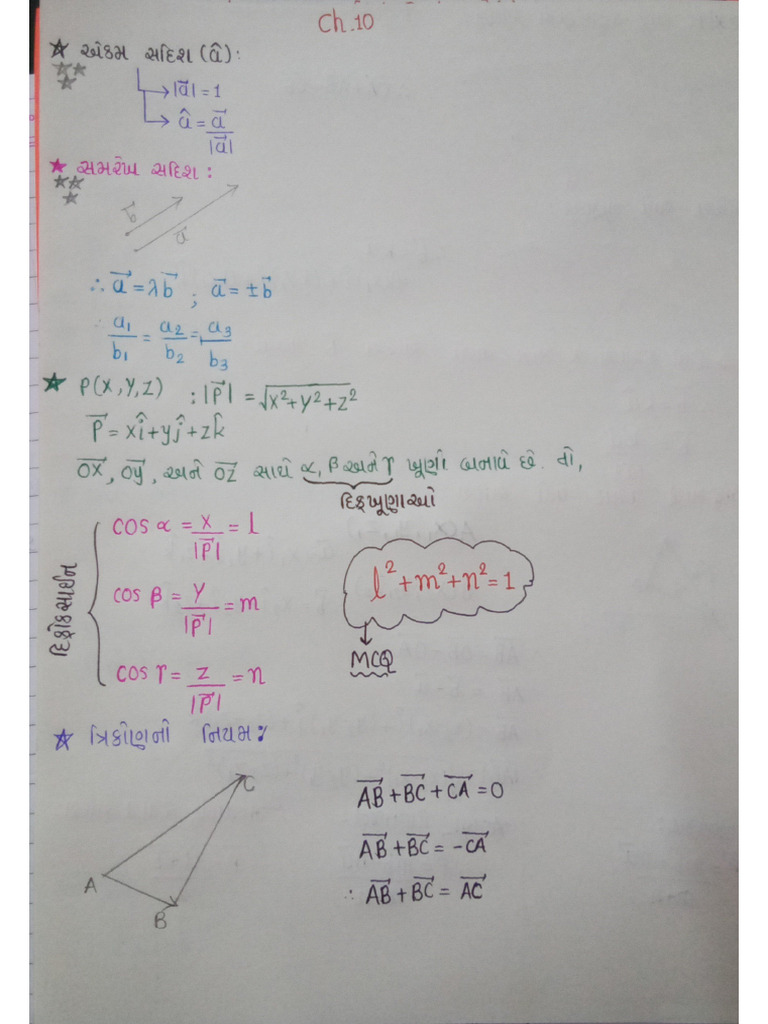 Ch.10
★ એકમ સદિશ (â):
→ |a⃗| = 1
→ â = a⃗ / |a⃗|
★ સમરેખ સદિશ :
b⃗
a⃗
∴ a⃗ = λb⃗ ; a⃗ = ±b⃗
∴ a₁/b₁ = a₂/b₂ = a₃/b₃
★ P(X,Y,Z) : |P⃗| = √(x²+y²+z²)
P⃗ = xî+yĵ+zk̂
OX⃗, OY⃗, અને OZ⃗ સાથે α, β અને γ ખૂણો બનાવે છે. તો,
દિક્ખૂણાઓ
દિક્કોસાઈન
cos α = x/|P⃗| = l
cos β = y/|P⃗| = m
cos γ = z/|P⃗| = n
l²+m²+n²=1
MCQ
★ ત્રિકોણનો નિયમ:
C
A
B
AB⃗ + BC⃗ + CA⃗ = 0
AB⃗ + BC⃗ = -CA⃗
∴ AB⃗ + BC⃗ = AC⃗